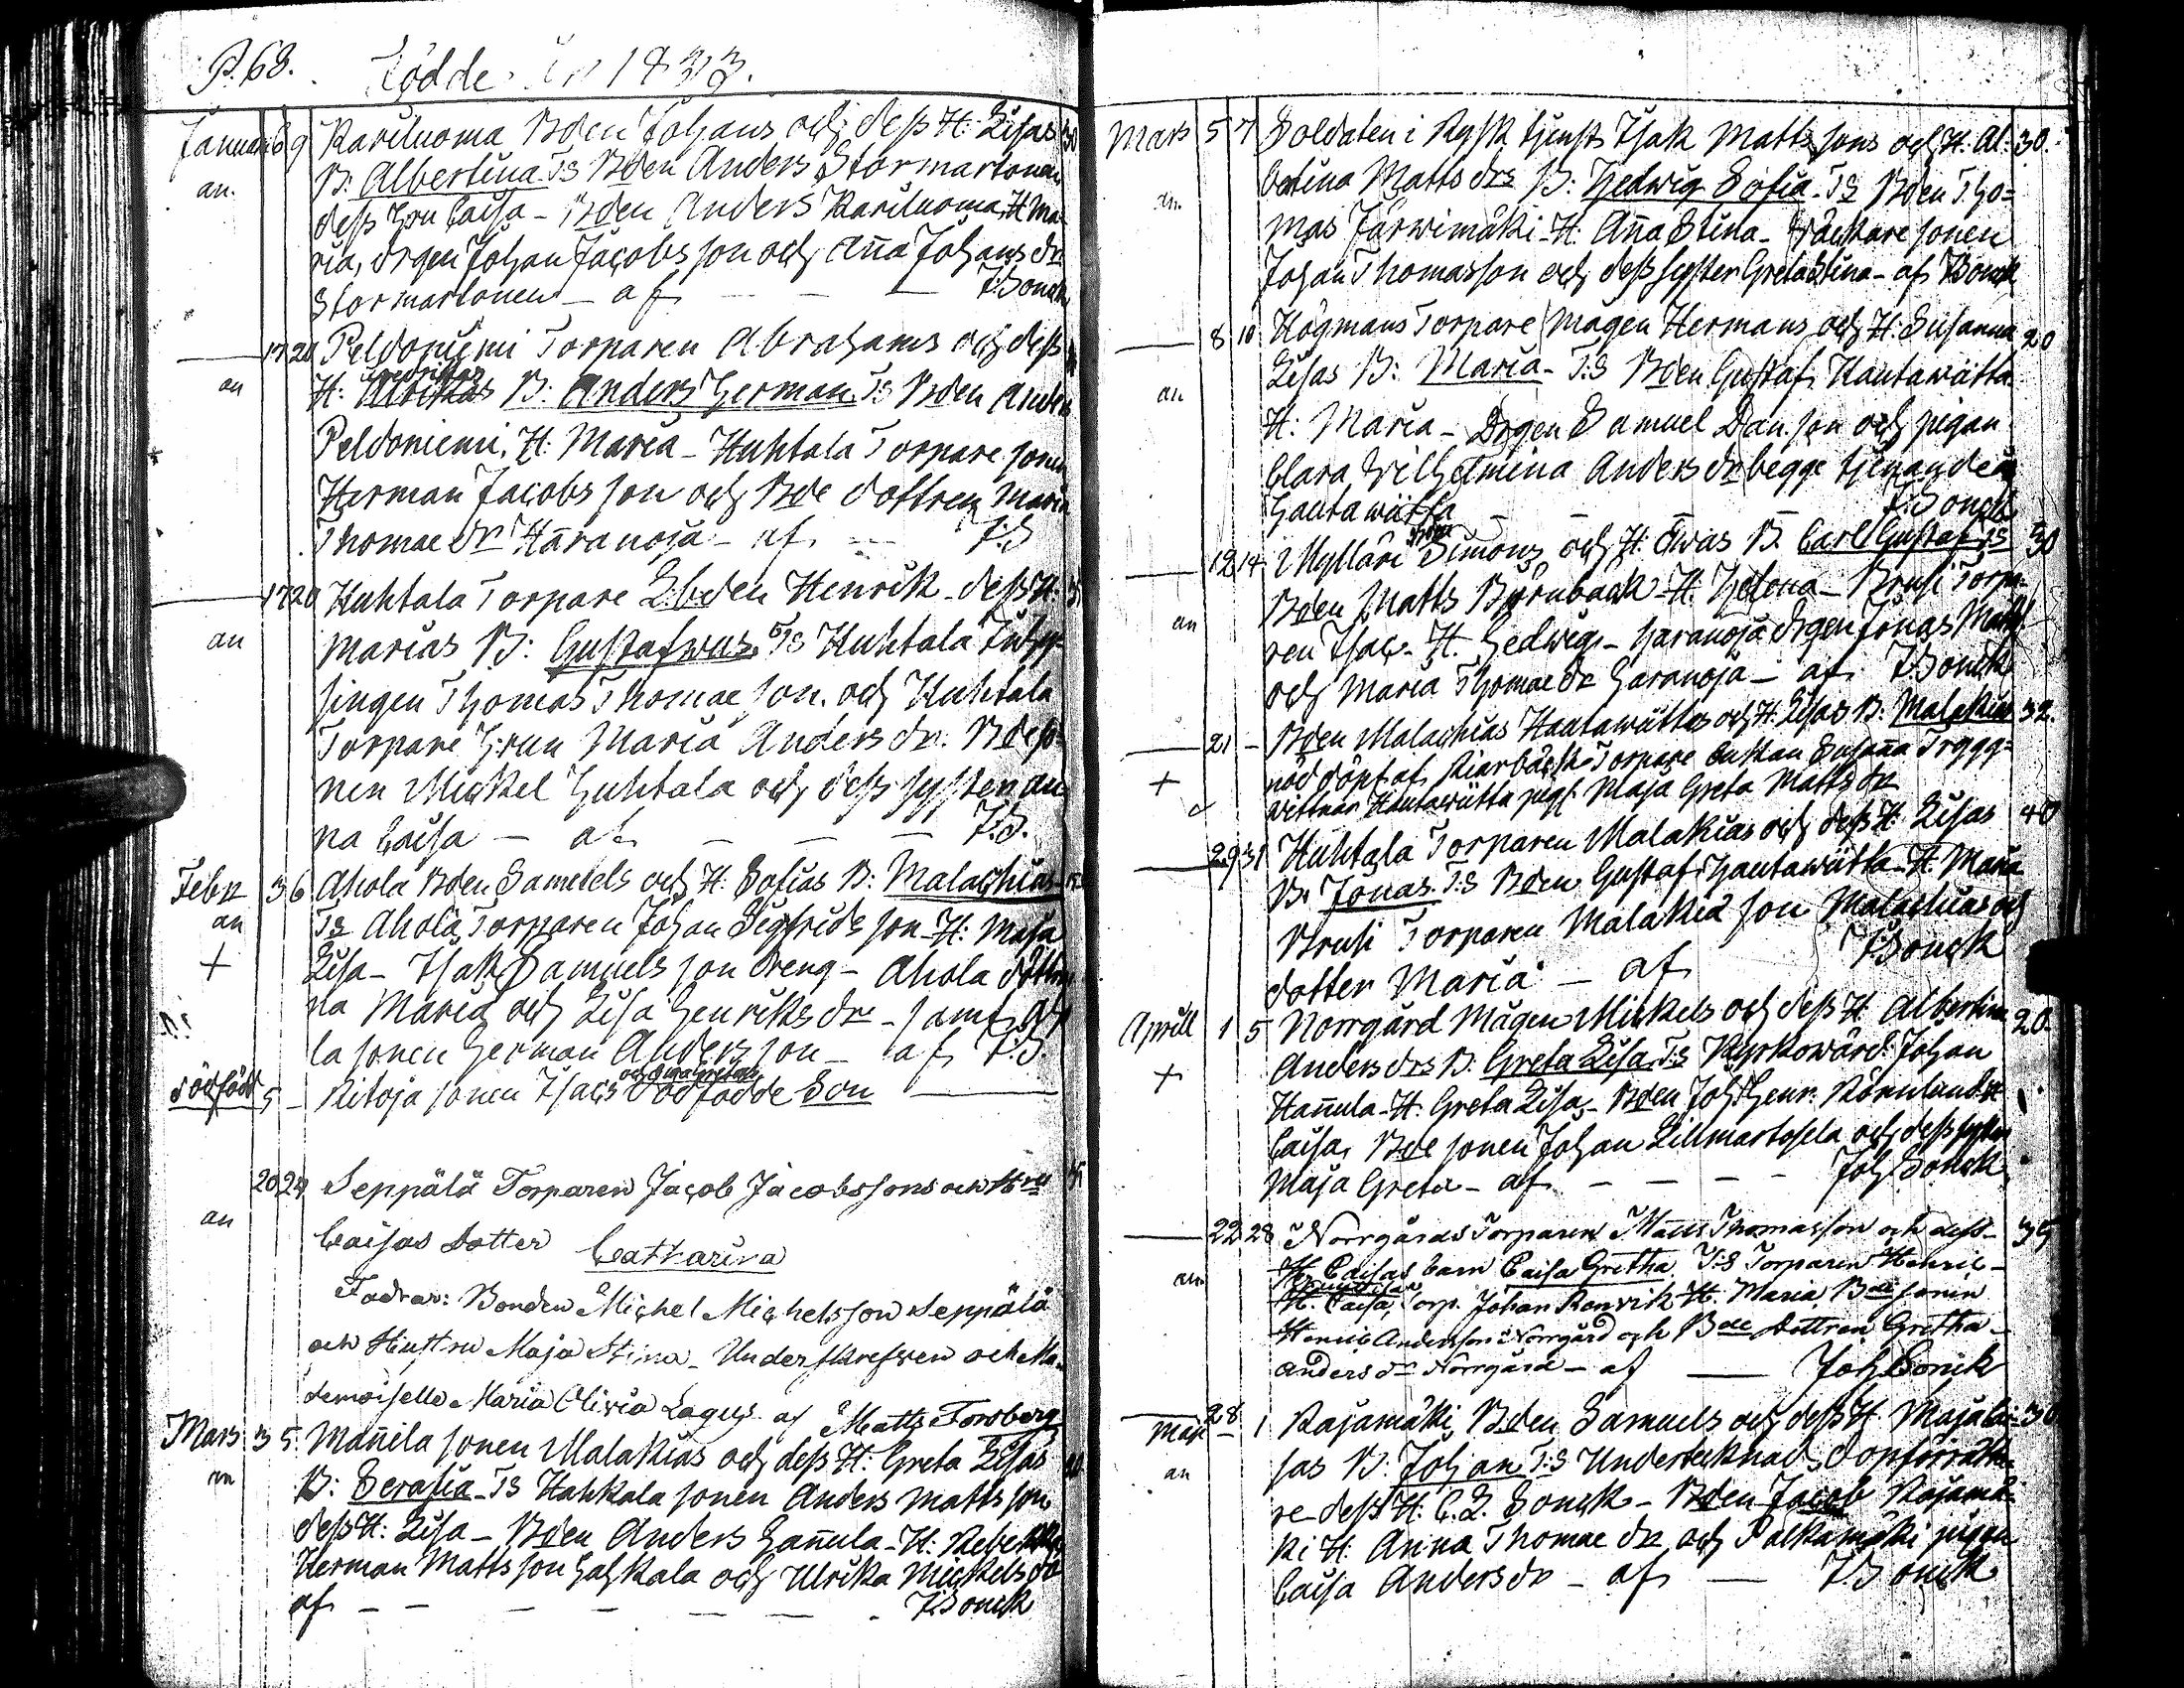 P. 68. Födde År 1833.
Januari 6 9 Kariluoma Bden Johans och dess H: Lisas 30
an. B: Albertina TS Bden Anders Stormartonen
dess Hru Caisa - Bden Anders Kariluoma, H. Ma-
ria, drgen Johan Jacobsson och Anna Johans dr
Stormartonen - af J.Bonck
17 20 Peldoniemi Torparen Abrahams och dess
an H: B: Anders Herman. TS Bden Anders
Peldoniemi, H: Maria - Huhtala Torpare sonen
Herman Jacobsson och Bde dottren Maria
Thomae dr Haranoja - af J.S
17 20 Huhtala Torpare Ebden Henrik - dess H:
an Marias B: Gustafwus. TS Huhtala Inhy-
singen Thomas Thomaeson. och Huhtala
Torpare Hrun Maria Anders dr. Bdeso-
nen Mickel Huhtala och dess syster An
na Caisa - af J.S.
Febr 3 6 Ahola Bden Samuels och H: Sofias B: Malachias
an TS Ahola Torparen Johan Sigfrids son - H: Maja
+ Lisa - Isak Samuels son dreng - Ahola dottr
na Maria och Lisa Henriks dr - samt Aho
la sonen Herman Andersson - af J.S.
dödfödd 5 - Ritoja sonen Isacs Dödfödde Son
20 24 Seppälä Torparen Jacob Jacobssons och Hru
an Caisas Dotter Catharina
Fadrar: Bonden Michel Michelsson Seppälä
och Hustru Maja Stina - Underskrefwen och Ma-
demoiselle Maria Olivia Lagus af Matts Forsberg
Mars 3 5. Mannila sonen Malakias och dess H: Greta Lisas
an B: Serafia - TS Hahkala sonen Anders Matts son
dess H: Lisa - Bden Anders Hannula - H: Rebecka
Herman Matts son Hahkala och Ulrika Mickels dr
af J.Sonck
Mars 5 7 Soldaten i Rysk tjenst Isak Matts sons och H. Al- 30.
an bertina Matts drs B: Hedwig Sofia - TS Bden Tho-
mas Järwimäki - H: Anna Stina - sonen
Johan Thomasson och dess syster Greta Stina - af Sonck
8 10 Högmans Torpare Mågen Hermans och H: Susanna 20
an Lisas B: Maria - T:S Bden Gustaf Hautawiitta
H: Maria - Drgen Samuel Dan. son och pigan
Clara Wilhelmina Anders dr begge tjenande å
Hautawiitta J.Sonck
12 14 Mylläri Simons och H: Ewas B. Carl Gustaf TS 30
an Bden Matts Björnback - H: Helena - Krusi Torpa-
ren Isac - H. Hedwig - Haranoja drgen Jonas Matts
och Maria Thomae dr Haranoja - af J.Sonck
21 - Bden Malachias Hautawiittas och H: Lisas B: Malakias 32.
+ nöddöpt af Torpare enkan Susanna Trygg-
vittnar Hautawiitta pigf. Maja Greta Matts dr
29 31 Huhtala Torparen Malakias och dess H: Lisas 40
B. Jonas. T:S Bden Gustaf Hautawiitta - H: Maria
Krusi Torparen Malakia son Malachias och
dotter Maria - af J.Sonck
Aprill 1 5 Norrgård Mågen Mickels och dess H. Albertina 20.
+ Anders drs B. Greta Lisa. T:S Kyrkowärd. Johan
Hannula - H: Greta Lisa - Bden Joh: Henr: H
Caisa, Bde sonen Johan Lillmartosela och dess syster
Maja Greta - af Joh Sonck
22 28 Norrgårds Torparen Matts Thomasson och dess 35
an H. Caisas barn Caisa Gretha T:S Torparen Henric
H. Caisa, Torp. Johan Ronvik H. Maria, Bde sonen
Henric Andersson Norrgård och Bde Dottren Gretha
Anders dr Norrgård - af Joh Sonck
28
Maji - 1 Rajamäki Bden Samuels och dess H. Maja Cai- 30
an sas B: Johan T:S Undertecknad, dopförrätta-
re dess H: C. L. Sonck - Bden Jacob Rajamä-
ki H: Anna Thomae dr och Palkamäki pigan
Caisa Anders dr - af J.Sonck